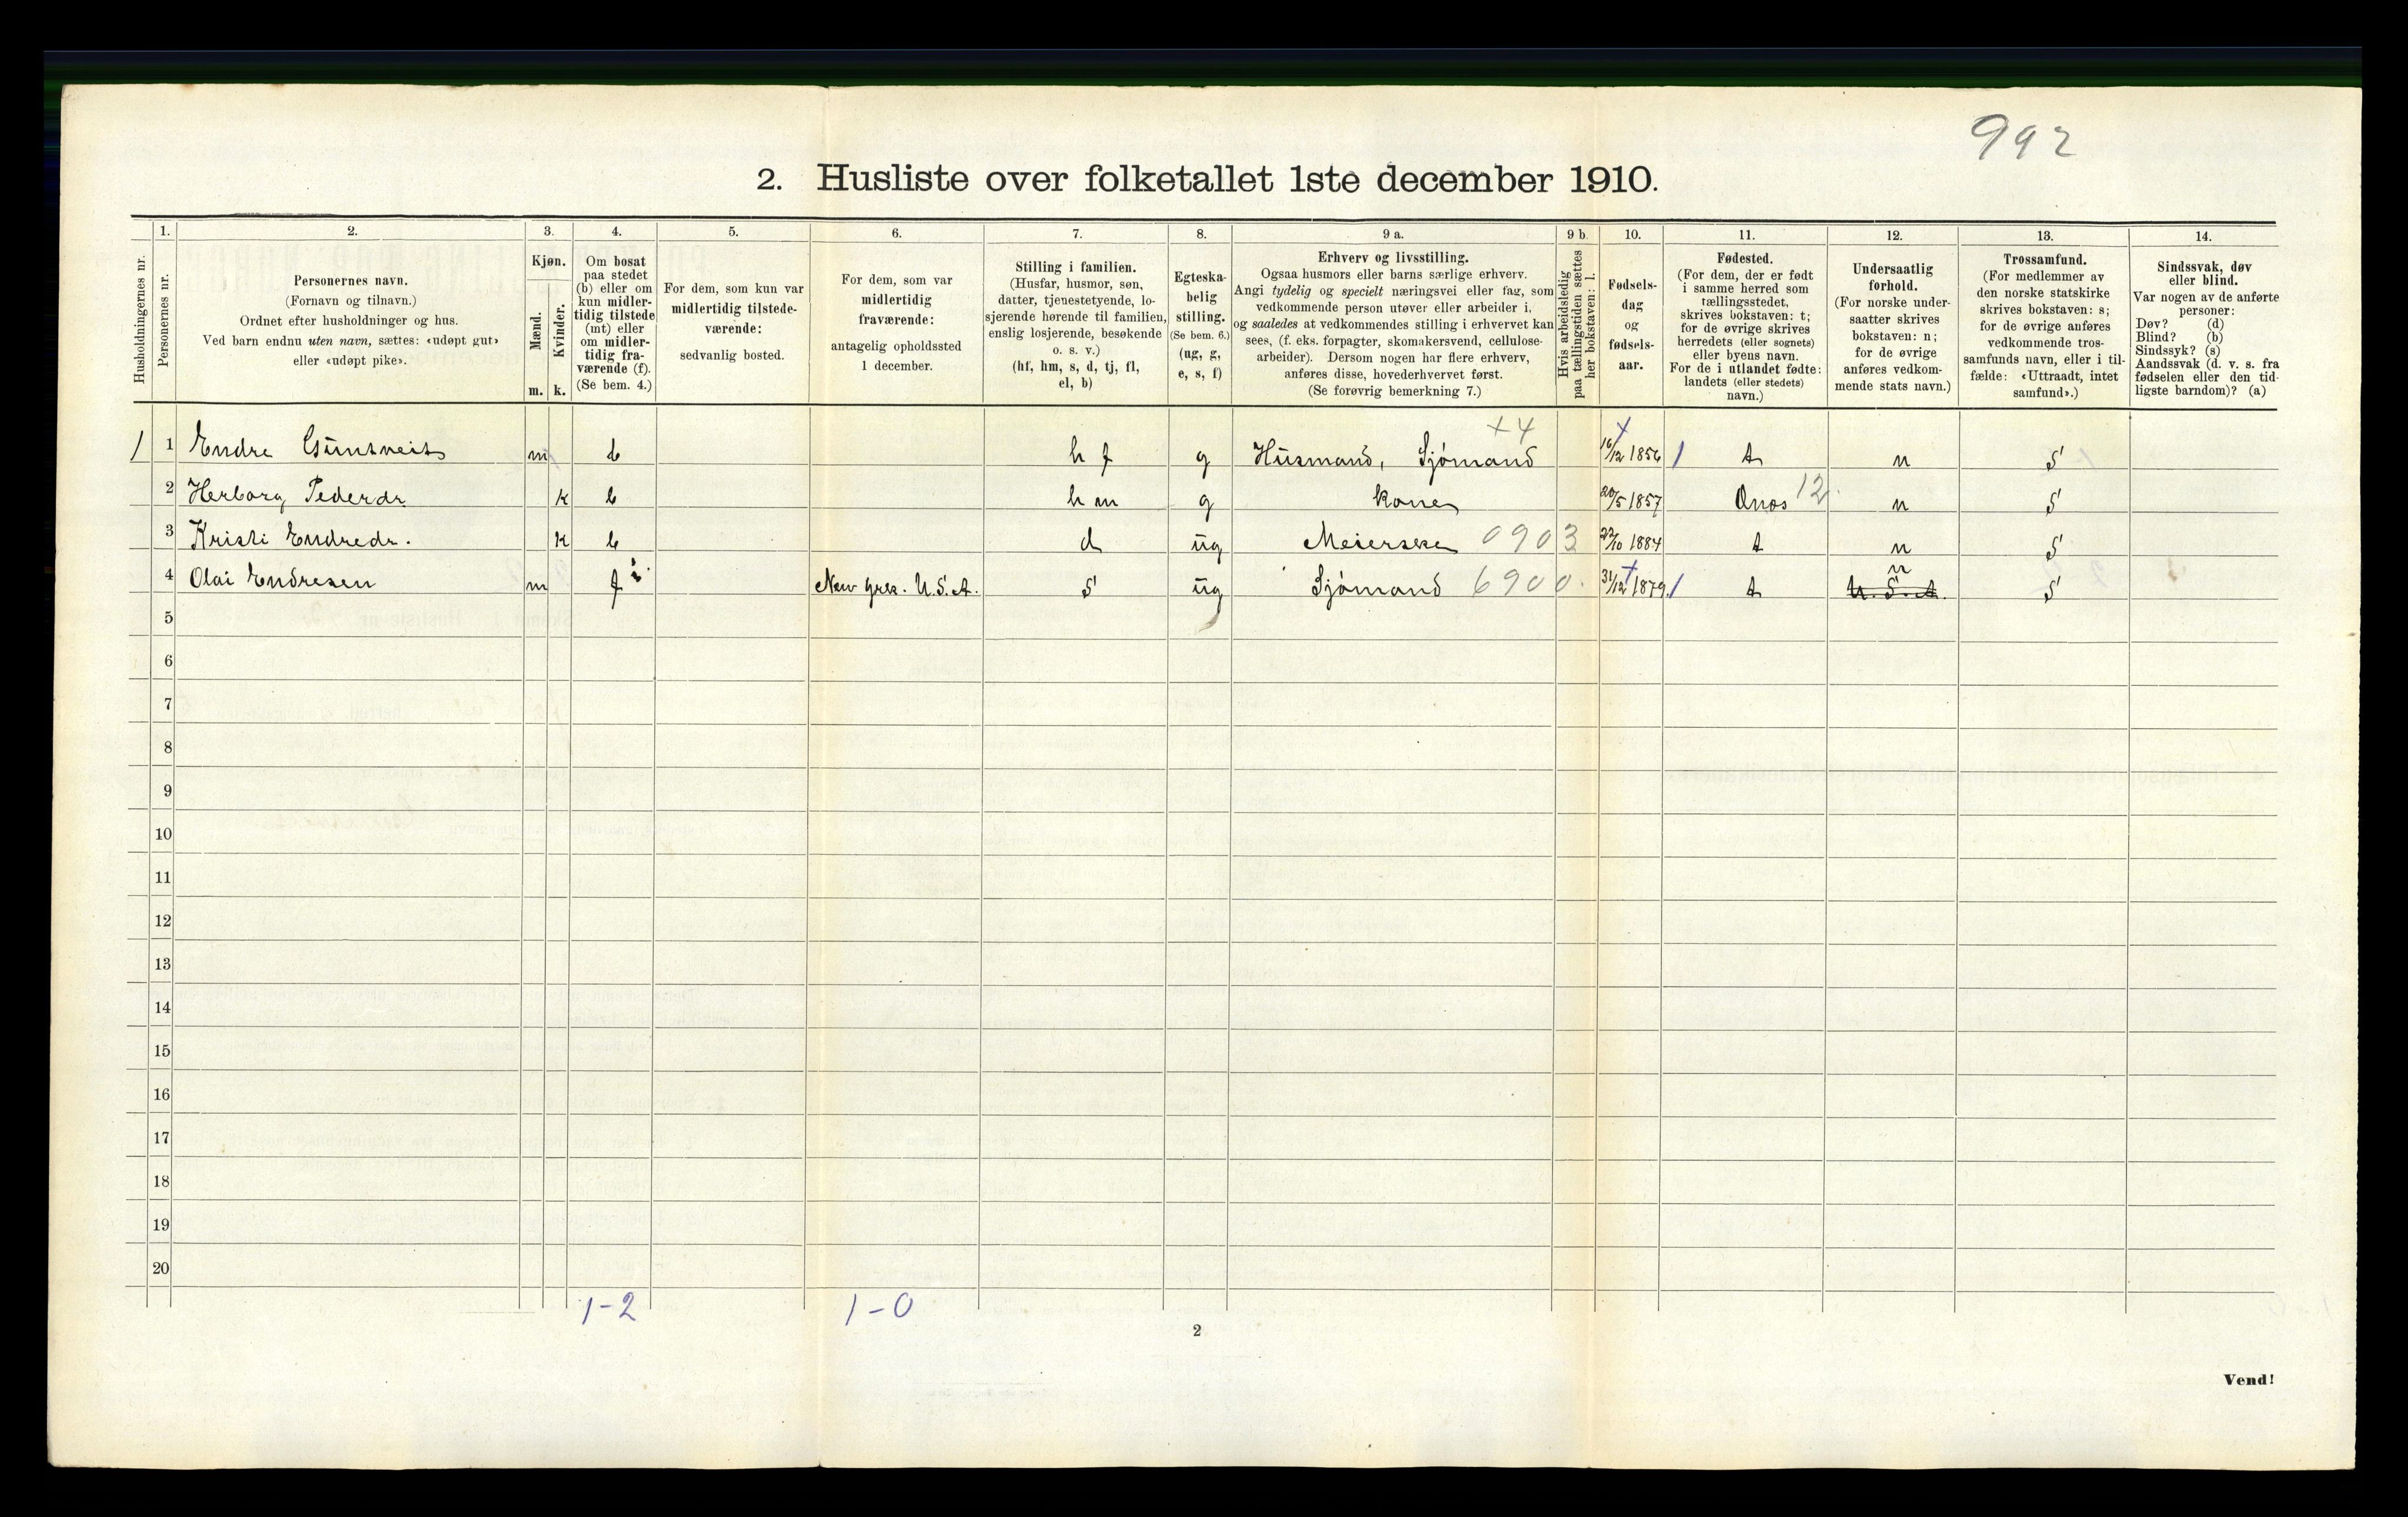 992
2. Husliste over folketallet 1ste december 1910.
Husholdningernes nr.
1. Personernes nr.
2. Personernes navn.
(Fornavn og tilnavn.)
Ordnet efter husholdninger og hus.
Ved barn endnu uten navn, sættes: «udøpt gut»
eller «udøpt pike».
3. Kjøn.
Mænd. m.
Kvinder. k.
4. Om bosat
paa stedet
(b) eller om
kun midler-
tidig tilstede
(mt) eller
om midler-
tidig fra-
værende (f).
(Se bem. 4.)
5. For dem, som kun var
midlertidig tilstede-
værende:
sedvanlig bosted.
6. For dem, som var
midlertidig
fraværende:
antagelig opholdssted
1 december.
7. Stilling i familien.
(Husfar, husmor, søn,
datter, tjenestetyende, lo-
sjerende hørende til familien,
enslig losjerende, besøkende
o. s. v.)
(hf, hm, s, d, tj, fl,
el, b)
8. Egteska-
belig
stilling.
(Se bem. 6.)
(ug, g,
e, s, f)
9 a. Erhverv og livsstilling.
Ogsaa husmors eller barns særlige erhverv.
Angi tydelig og specielt næringsvei eller fag, som
vedkommende person utøver eller arbeider i,
og saaledes at vedkommendes stilling i erhvervet kan
sees, (f. eks. forpagter, skomakersvend, cellulose-
arbeider). Dersom nogen har flere erhverv,
anføres disse, hovederhvervet først.
(Se forøvrig bemerkning 7.)
9 b. Hvis arbeidsledig
paa tællingstiden sættes
her bokstaven: l.
10. Fødsels-
dag
og
fødsels-
aar.
11. Fødested.
(For dem, der er født
i samme herred som
tællingsstedet,
skrives bokstaven: t;
for de øvrige skrives
herredets (eller sognets)
eller byens navn.
For de i utlandet fødte:
landets (eller stedets)
navn.)
12. Undersaatlig
forhold.
(For norske under-
saatter skrives
bokstaven: n;
for de øvrige
anføres vedkom-
mende stats navn.)
13. Trossamfund.
(For medlemmer av
den norske statskirke
skrives bokstaven: s;
for de øvrige anføres
vedkommende tros-
samfunds navn, eller i til-
fælde: «Uttraadt, intet
samfund».)
14. Sindssvak, døv
eller blind.
Var nogen av de anførte
personer:
Døv? (d)
Blind? (b)
Sindssyk? (s)
Aandssvak (d. v. s. fra
fødselen eller den tid-
ligste barndom)? (a)
1 1 Endre m b hf g Husmand, Sjømand +4 16/12 1856 1 t n S
2 Herborg Pederdr. k b hm g kone 20/5 1857 12 n S
3 Kristi Endredr. k b d ug Meierske 0903 22/10 1884 t n S
4 Olai Endresen m f New York. U.S.A. S ug Sjømand 6900 31/12 1879 1 t n U.S.A. S
5
6
7
8
9
10
11
12
13
14
15
16
17
18
19
20
1-2 1-0
2
Vend!